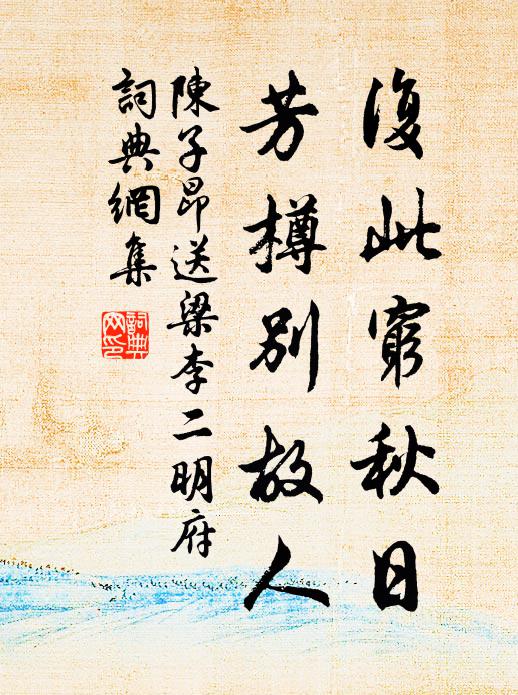 復此窮秋日
芳樽別故人
陳子昂送梁李二明府
詞典網集
詞典
网印